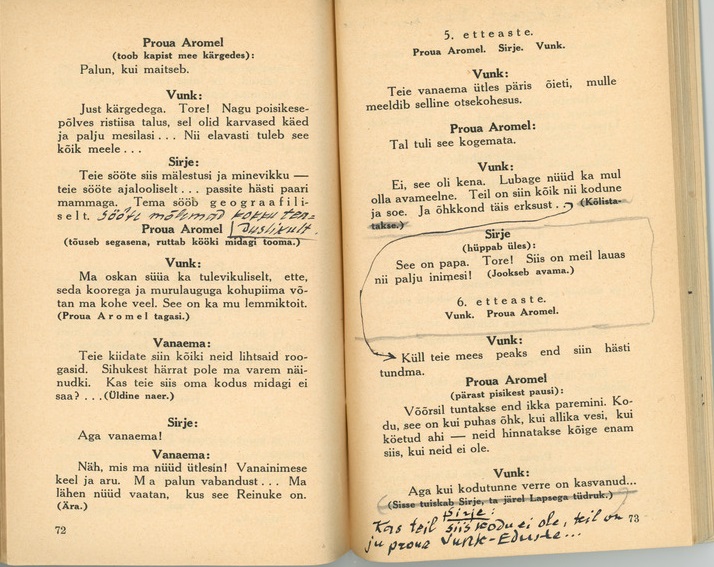 Proua Aromel
(toob kapist mee kärgedes):
Palun, kui maitseb.
Vunk:
Just kärgedega. Tore! Nagu poisikese-
põlves ristiisa talus, sel olid karvased käed
ja palju mesilasi... Nii elavasti tuleb see
kõik meele...
Sirje:
Teie sööte siis mälestusi ja minevikku —
teie sööte ajalooliselt... passite hästi paari
mammaga. Tema sööb geograafili-
selt. Sööte mõlemad kokku tea=
duslikult.
Proua Aromel
(tõuseb segasena, ruttab kööki midagi tooma.)
Vunk:
Ma oskan süüa ka tulevikuliselt, ette,
seda koorega ja murulauguga kohupiima võ-
tan ma kohe veel. See on ka mu lemmiktoit.
(Proua Aromel tagasi.)
Vanaema:
Teie kiidate siin kõiki neid lihtsaid roo-
gasid. Sihukest härrat pole ma varem näi-
nudki. Kas teie siis oma kodus midagi ei
saa?...(Üldine naer.)
Sirje:
Aga vanaema!
Vanaema:
Näh, mis ma nüüd ütlesin! Vanainimese
keel ja aru. Ma palun vabandust... Ma
lähen nüüd vaatan, kus see Reinuke on.
(Ära.)
72
5. etteaste.
Proua Aromel. Sirje. Vunk.
Vunk:
Teie vanaema ütles päris õieti, mulle
meeldib selline otsekohesus.
Proua Aromel:
Tal tuli see kogemata.
Vunk:
Ei, see oli kena. Lubage nüüd ka mul
olla avameelne. Teil on siin kõik nii kodune
ja soe. Ja õhkkond täis erksust... (Kõlista-
takse.)
Sirje
(hüppab üles):
See on papa. Tore! Siis on meil lauas
nii palju inimesi! (Jookseb avama.)
6. etteaste.
Vunk. Proua Aromel.
Vunk:
Küll teie mees peaks end siin hästi
tundma.
Proua Aromel
(pärast pisikest pausi):
Võõrsil tuntakse end ikka paremini. Ko-
du, see on kui puhas õhk, kui allika vesi, kui
köetud ahi — neid hinnatakse kõige enam
siis, kui neid ei ole.
Vunk:
Aga kui kodutunne verre on kasvanud...
(Sisse tuiskab Sirje, ta järel Lapsega tüdruk.)
Sirje:
Kas teil siis kodu ei ole, teil on
ju proua Vunk-Eduste...
73